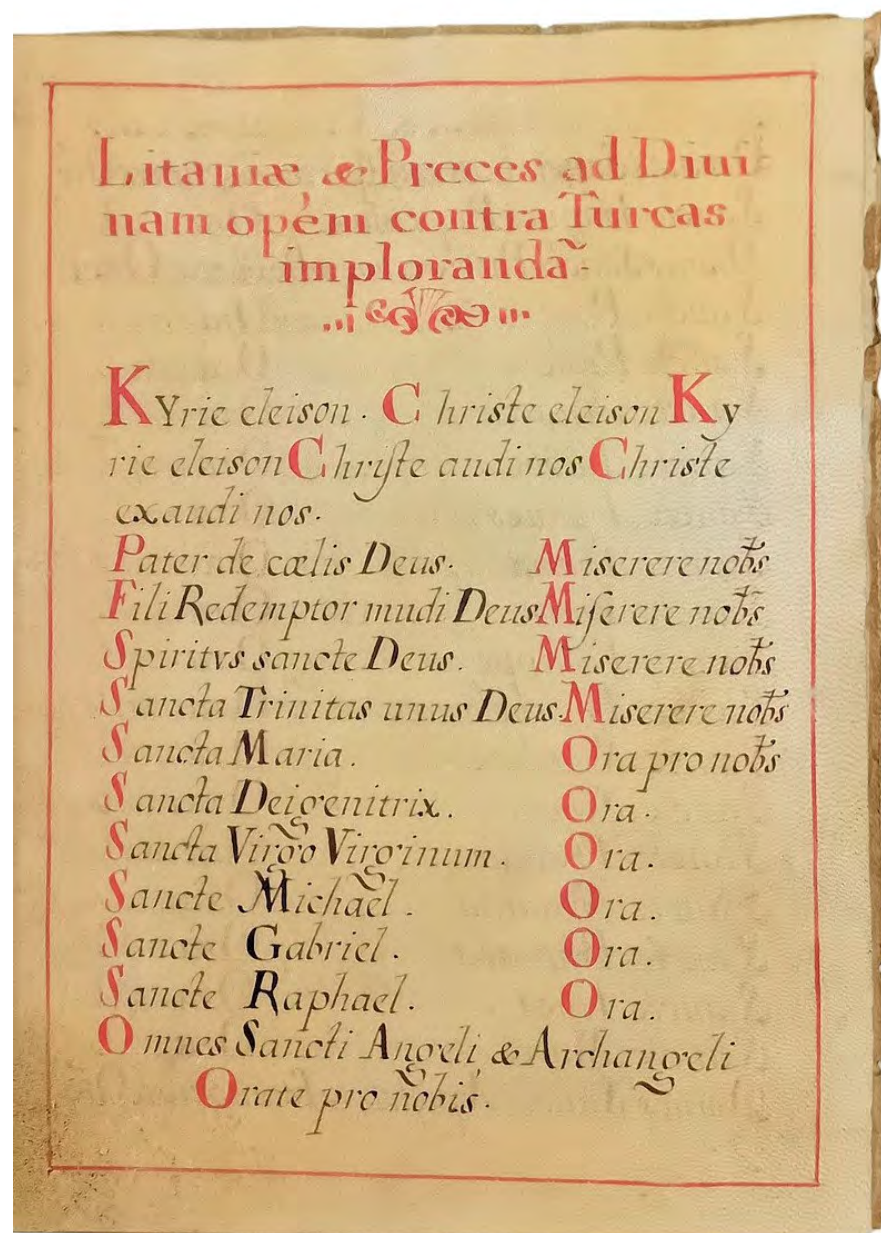 Litaniæ & Preces ad Diui
nam opém contra Turcas
implorandã.
KYrie eleison. Christe eleison Ky
rie eleison Chriſte audi nos Christe
exaudi nos.
Pater de cælis Deus. Miserere nob̃s
Fili Redemptor mudi Deus Miſerere nob̃s
Spiritvs sancte Deus. Miserere nob̃s
Sancta Trinitas unus Deus. Miserere nob̃s
Sancta Maria. Ora pro nob̃s
Sancta Deigenitrix. Ora.
Sancta Virgo Virginum. Ora.
Sancte Michael. Ora.
Sancte Gabriel. Ora.
Sancte Raphael. Ora.
Omnes Sancti Angeli, & Archangeli
Orate pro nobis.